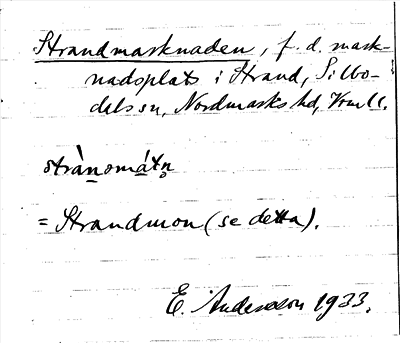 Strandmarknaden, f. d. mark-
nadsplats i Strand, Silbo-
dals sn, Nordmarks hd, Vrml.
strànomátn̥
= Strandmon (se detta).
E. Andersson 1933.